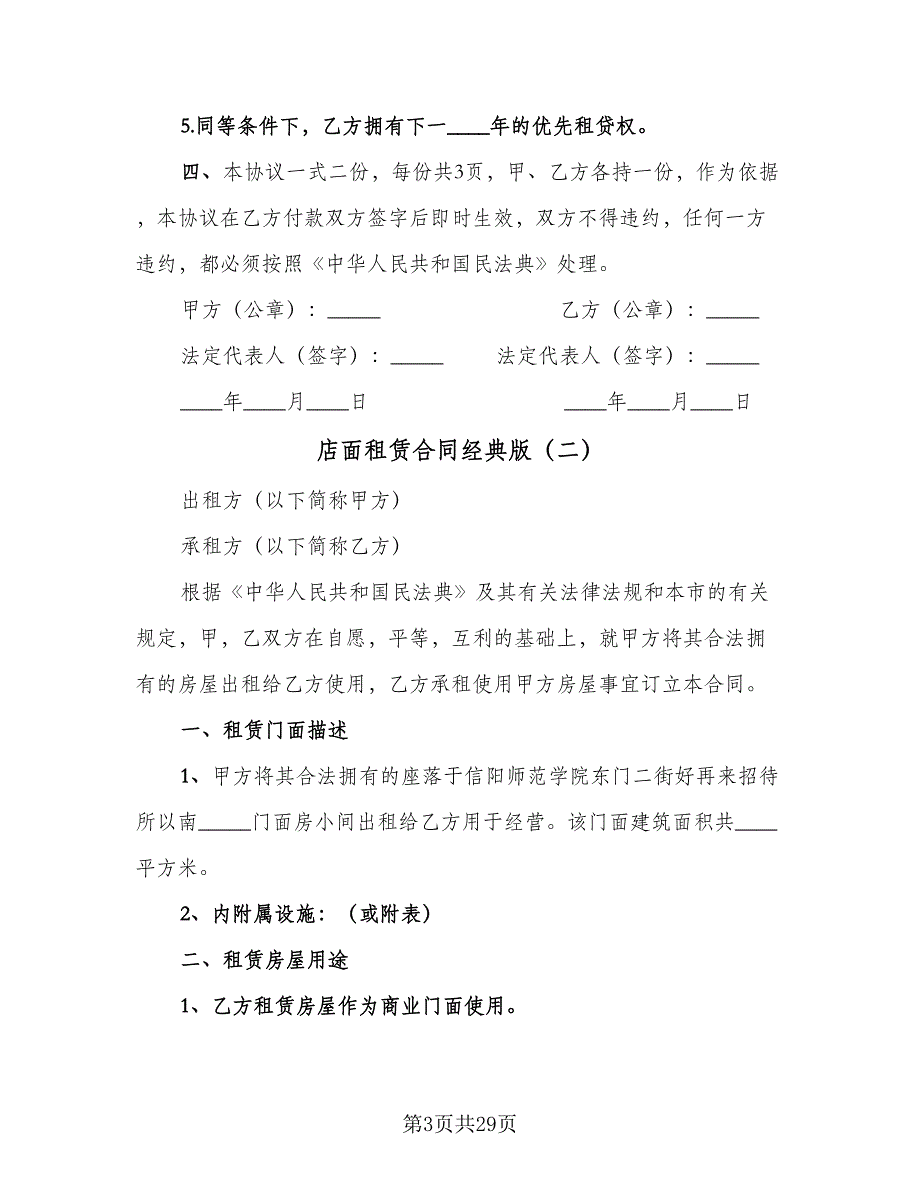 5.同等条件下，乙方拥有下一____年的优先租贷权。
四、本协议一式二份，每份共3页，甲、乙方各持一份，作为依据
，本协议在乙方付款双方签字后即时生效，双方不得违约，任何一方
违约，都必须按照《中华人民共和国民法典》处理。
甲方（公章）：_____ 乙方（公章）：_____
法定代表人（签字）：_____ 法定代表人（签字）：_____
____年____月____日 ____年____月____日
店面租赁合同经典版（二）
出租方（以下简称甲方）
承租方（以下简称乙方）
根据《中华人民共和国民法典》及其有关法律法规和本市的有关
规定，甲，乙双方在自愿，平等，互利的基础上，就甲方将其合法拥
有的房屋出租给乙方使用，乙方承租使用甲方房屋事宜订立本合同。
一、租赁门面描述
1、甲方将其合法拥有的座落于信阳师范学院东门二街好再来招待
所以南_____门面房小间出租给乙方用于经营。该门面建筑面积共____
平方米。
2、内附属设施：（或附表）
二、租赁房屋用途
1、乙方租赁房屋作为商业门面使用。
第3页共29页